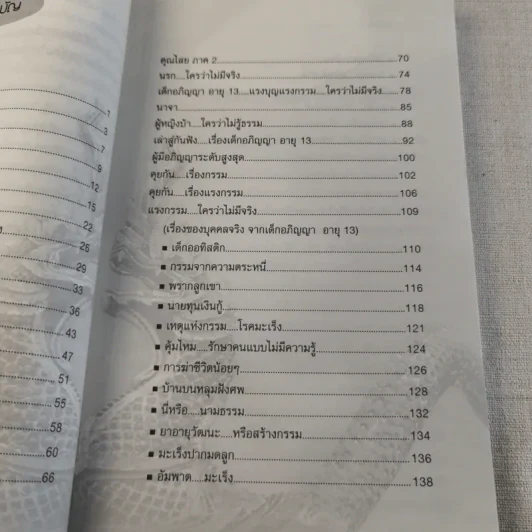 บัญ
1
3
7
9
12
15
22
25
29
33
36
43
47
51
55
58
60
66
คุณไสย ภาค 2 70
นรก....ใครว่าไม่มีจริง 74
เด็กอภิญญา อายุ 13....แรงบุญแรงกรรม....ใครว่าไม่มีจริง 78
นาจา 85
ผู้หญิงบ้า....ใครว่าไม่รู้ธรรม 88
เล่าสู่กันฟัง....เรื่องเด็กอภิญญา อายุ 13 92
ผู้มีอภิญญาระดับสูงสุด 100
คุยกัน....เรื่องกรรม 102
คุยกัน....เรื่องแรงกรรม 106
แรงกรรม....ใครว่าไม่มีจริง 109
(เรื่องของบุคคลจริง จากเด็กอภิญญา อายุ 13)
■ เด็กออทิสติก 110
■ กรรมจากความตระหนี่ 114
■ พรากลูกเขา 116
■ นายทุนเงินกู้ 118
■ เหตุแห่งกรรม....โรคมะเร็ง 121
■ คุ้มไหม....รักษาคนแบบไม่มีความรู้ 124
■ การฆ่าชีวิตน้อยๆ 126
■ บ้านบนหลุมฝังศพ 128
■ นี่หรือ....นามธรรม 132
■ ยาอายุวัฒนะ....หรือสร้างกรรม 134
■ มะเร็งปากมดลูก 136
■ อัมพาต....มะเร็ง 138